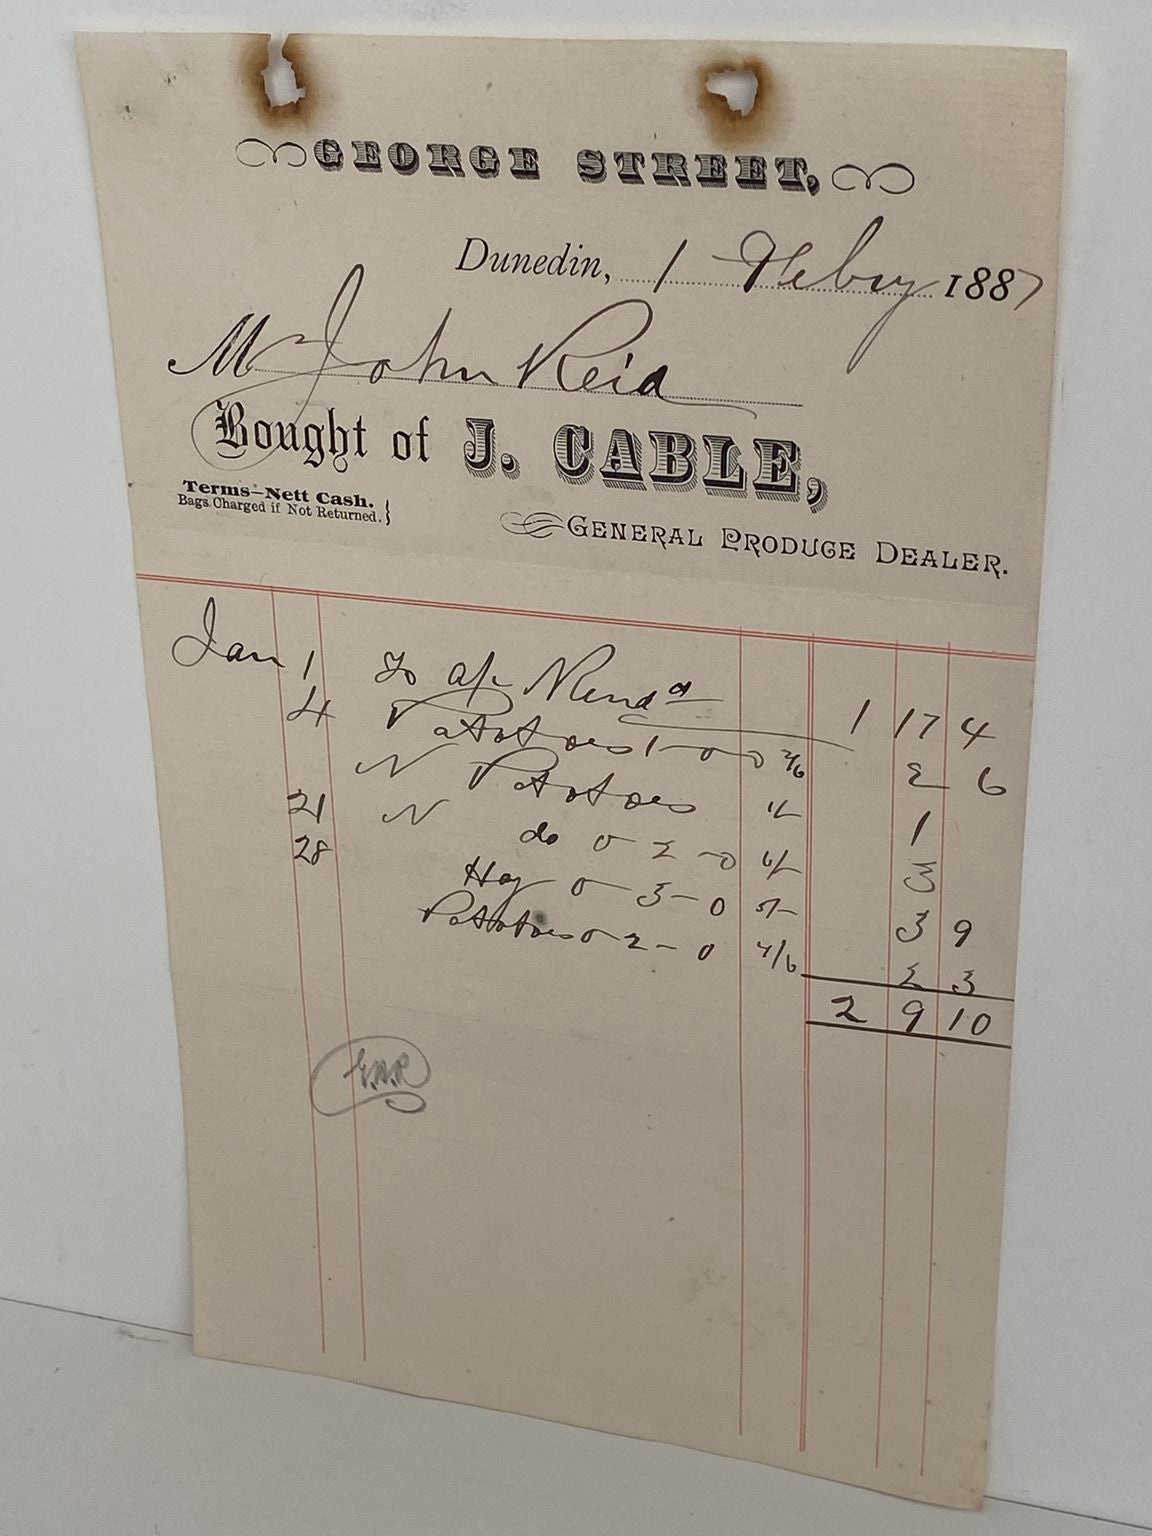 GEORGE STREET,
Dunedin, 1 Febry 1887
Mr John Reid
Bought of J. CABLE,
Terms—Nett Cash.
Bags Charged if Not Returned. }
GENERAL PRODUCE DEALER.
Jan 1 To a/c Rendd 1 17 4
4 Potatoes 1-0-0 2/6 2 6
Potatoes 1/- 1
21 do 0-2-0 6/- 3
28 Hay 0-3-0 5/- 3 9
Potatoes 0-2-0 4/6 2 3
2 9 10